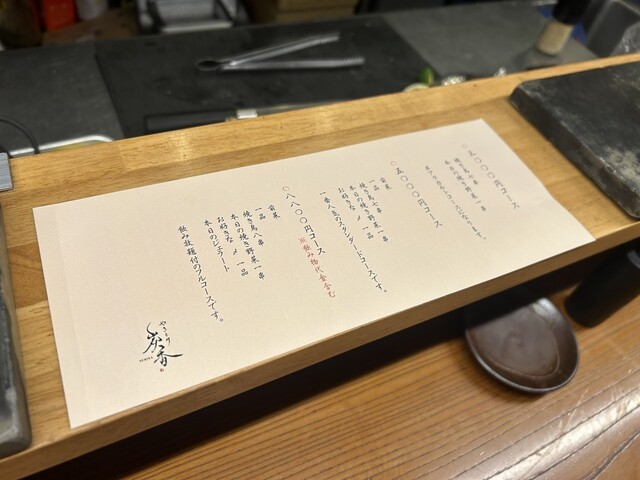 〇〇〇円コース
焼き鳥七串
本日の焼き野菜一串
になります。
○五〇〇〇円コース
前菜
一品
焼き鳥七串
本日の焼き野菜一串
お好きな 〆 一品
一番人気のスタンダードコースです。
○八八〇〇円コース ※飲み物代金含む
前菜
一品
焼き鳥八串
本日の焼き野菜一串
お好きな 〆 一品
本日のジェラート
飲み放題付のフルコースです。
やきとり
炭香